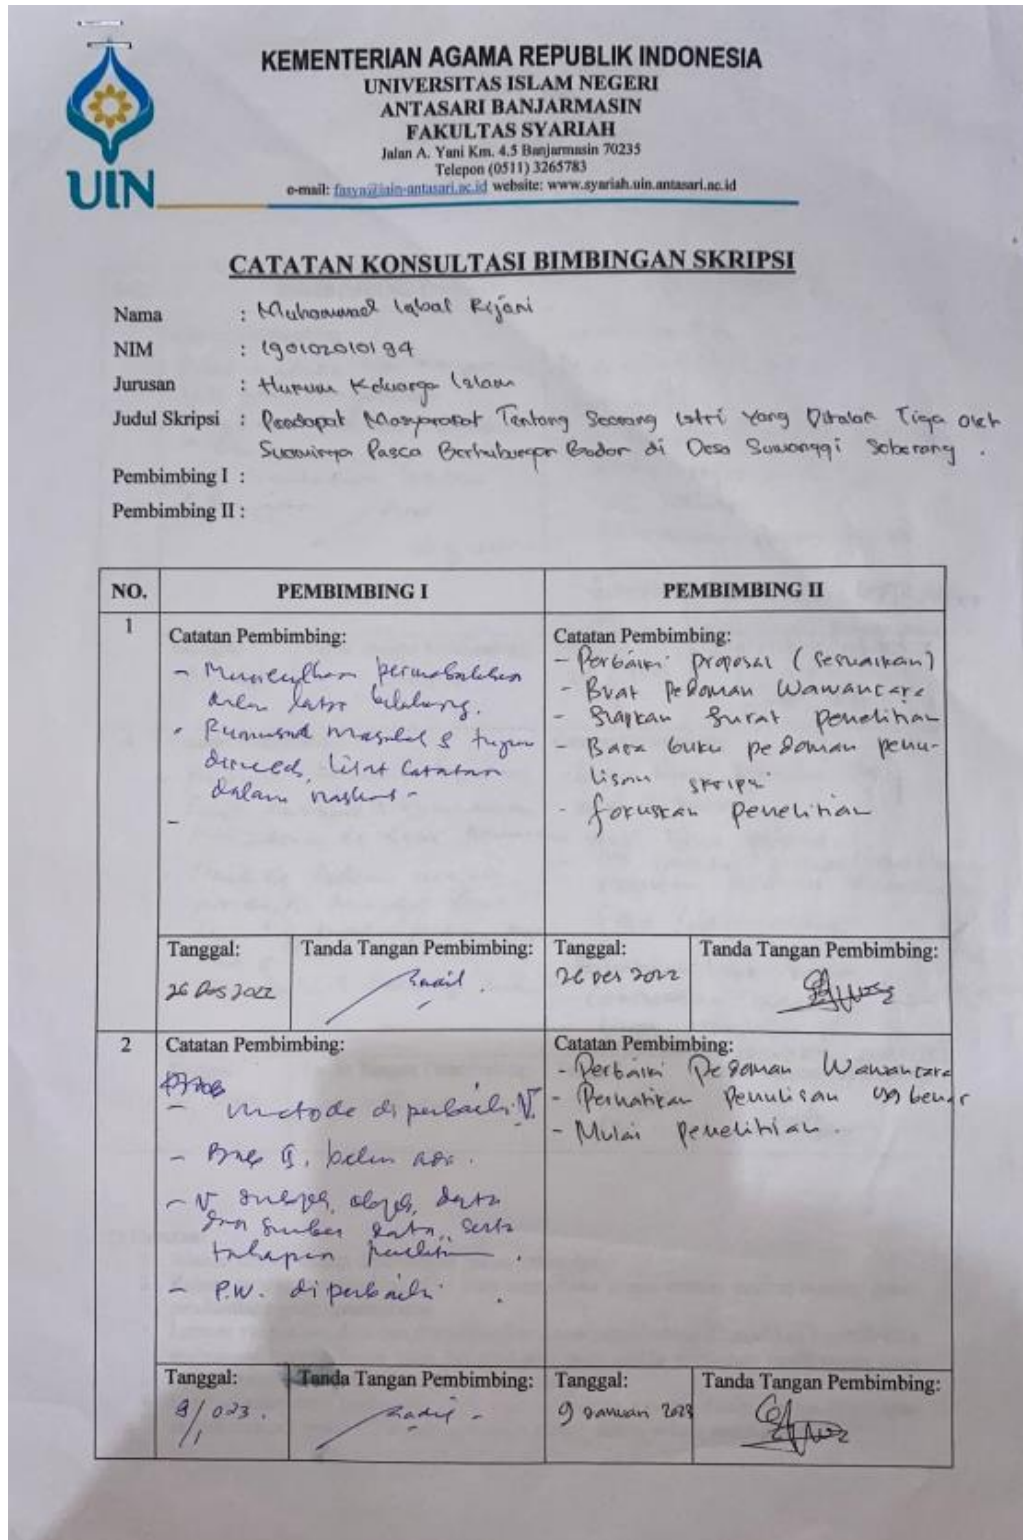 KEMENTERIAN AGAMA REPUBLIK INDONESIA
UNIVERSITAS ISLAM NEGERI
ANTASARI BANJARMASIN
FAKULTAS SYARIAH
Jalan A. Yani Km. 4.5 Banjarmasin 70235
Telepon (0511) 3265783
e-mail: fasya@iain-antasari.ac.id website: www.syariah.uin.antasari.ac.id
UIN
CATATAN KONSULTASI BIMBINGAN SKRIPSI
Nama : Muhammad Iqbal Rijani
NIM : 190102010194
Jurusan : Hukum Keluarga Islam
Judul Skripsi : Pendapat Masyarakat Tentang Seorang Istri Yang Ditalak Tiga oleh
Suaminya Pasca Berhubungan Badan di Desa Sumanggi Seberang .
Pembimbing I :
Pembimbing II :
NO. PEMBIMBING I PEMBIMBING II
1
Catatan Pembimbing:
- permasalahan
latar belakang.
- Rumusan masalah & tujuan
lihat catatan
dalam
-
Catatan Pembimbing:
- Perbaiki proposal (sesuaikan)
- Buat Pedoman Wawancara
- Siapkan Surat penelitian
- Baca buku pedoman penu-
lisan skripsi
- fokuskan penelitian
Tanggal: Tanda Tangan Pembimbing: Tanggal: Tanda Tangan Pembimbing:
26 Des 2022 26 Des 2022
2
Catatan Pembimbing:
- metode diperbaiki
- Bab II. belum ada.
- data
dan sumber data, serta
tahapan penelitian .
- P.W. diperbaiki .
Catatan Pembimbing:
- Perbaiki Pedoman Wawancara
- Perhatikan Penulisan yg benar
- Mulai penelitian .
Tanggal: Tanda Tangan Pembimbing: Tanggal: Tanda Tangan Pembimbing:
9/1 023. 9 Januari 2023